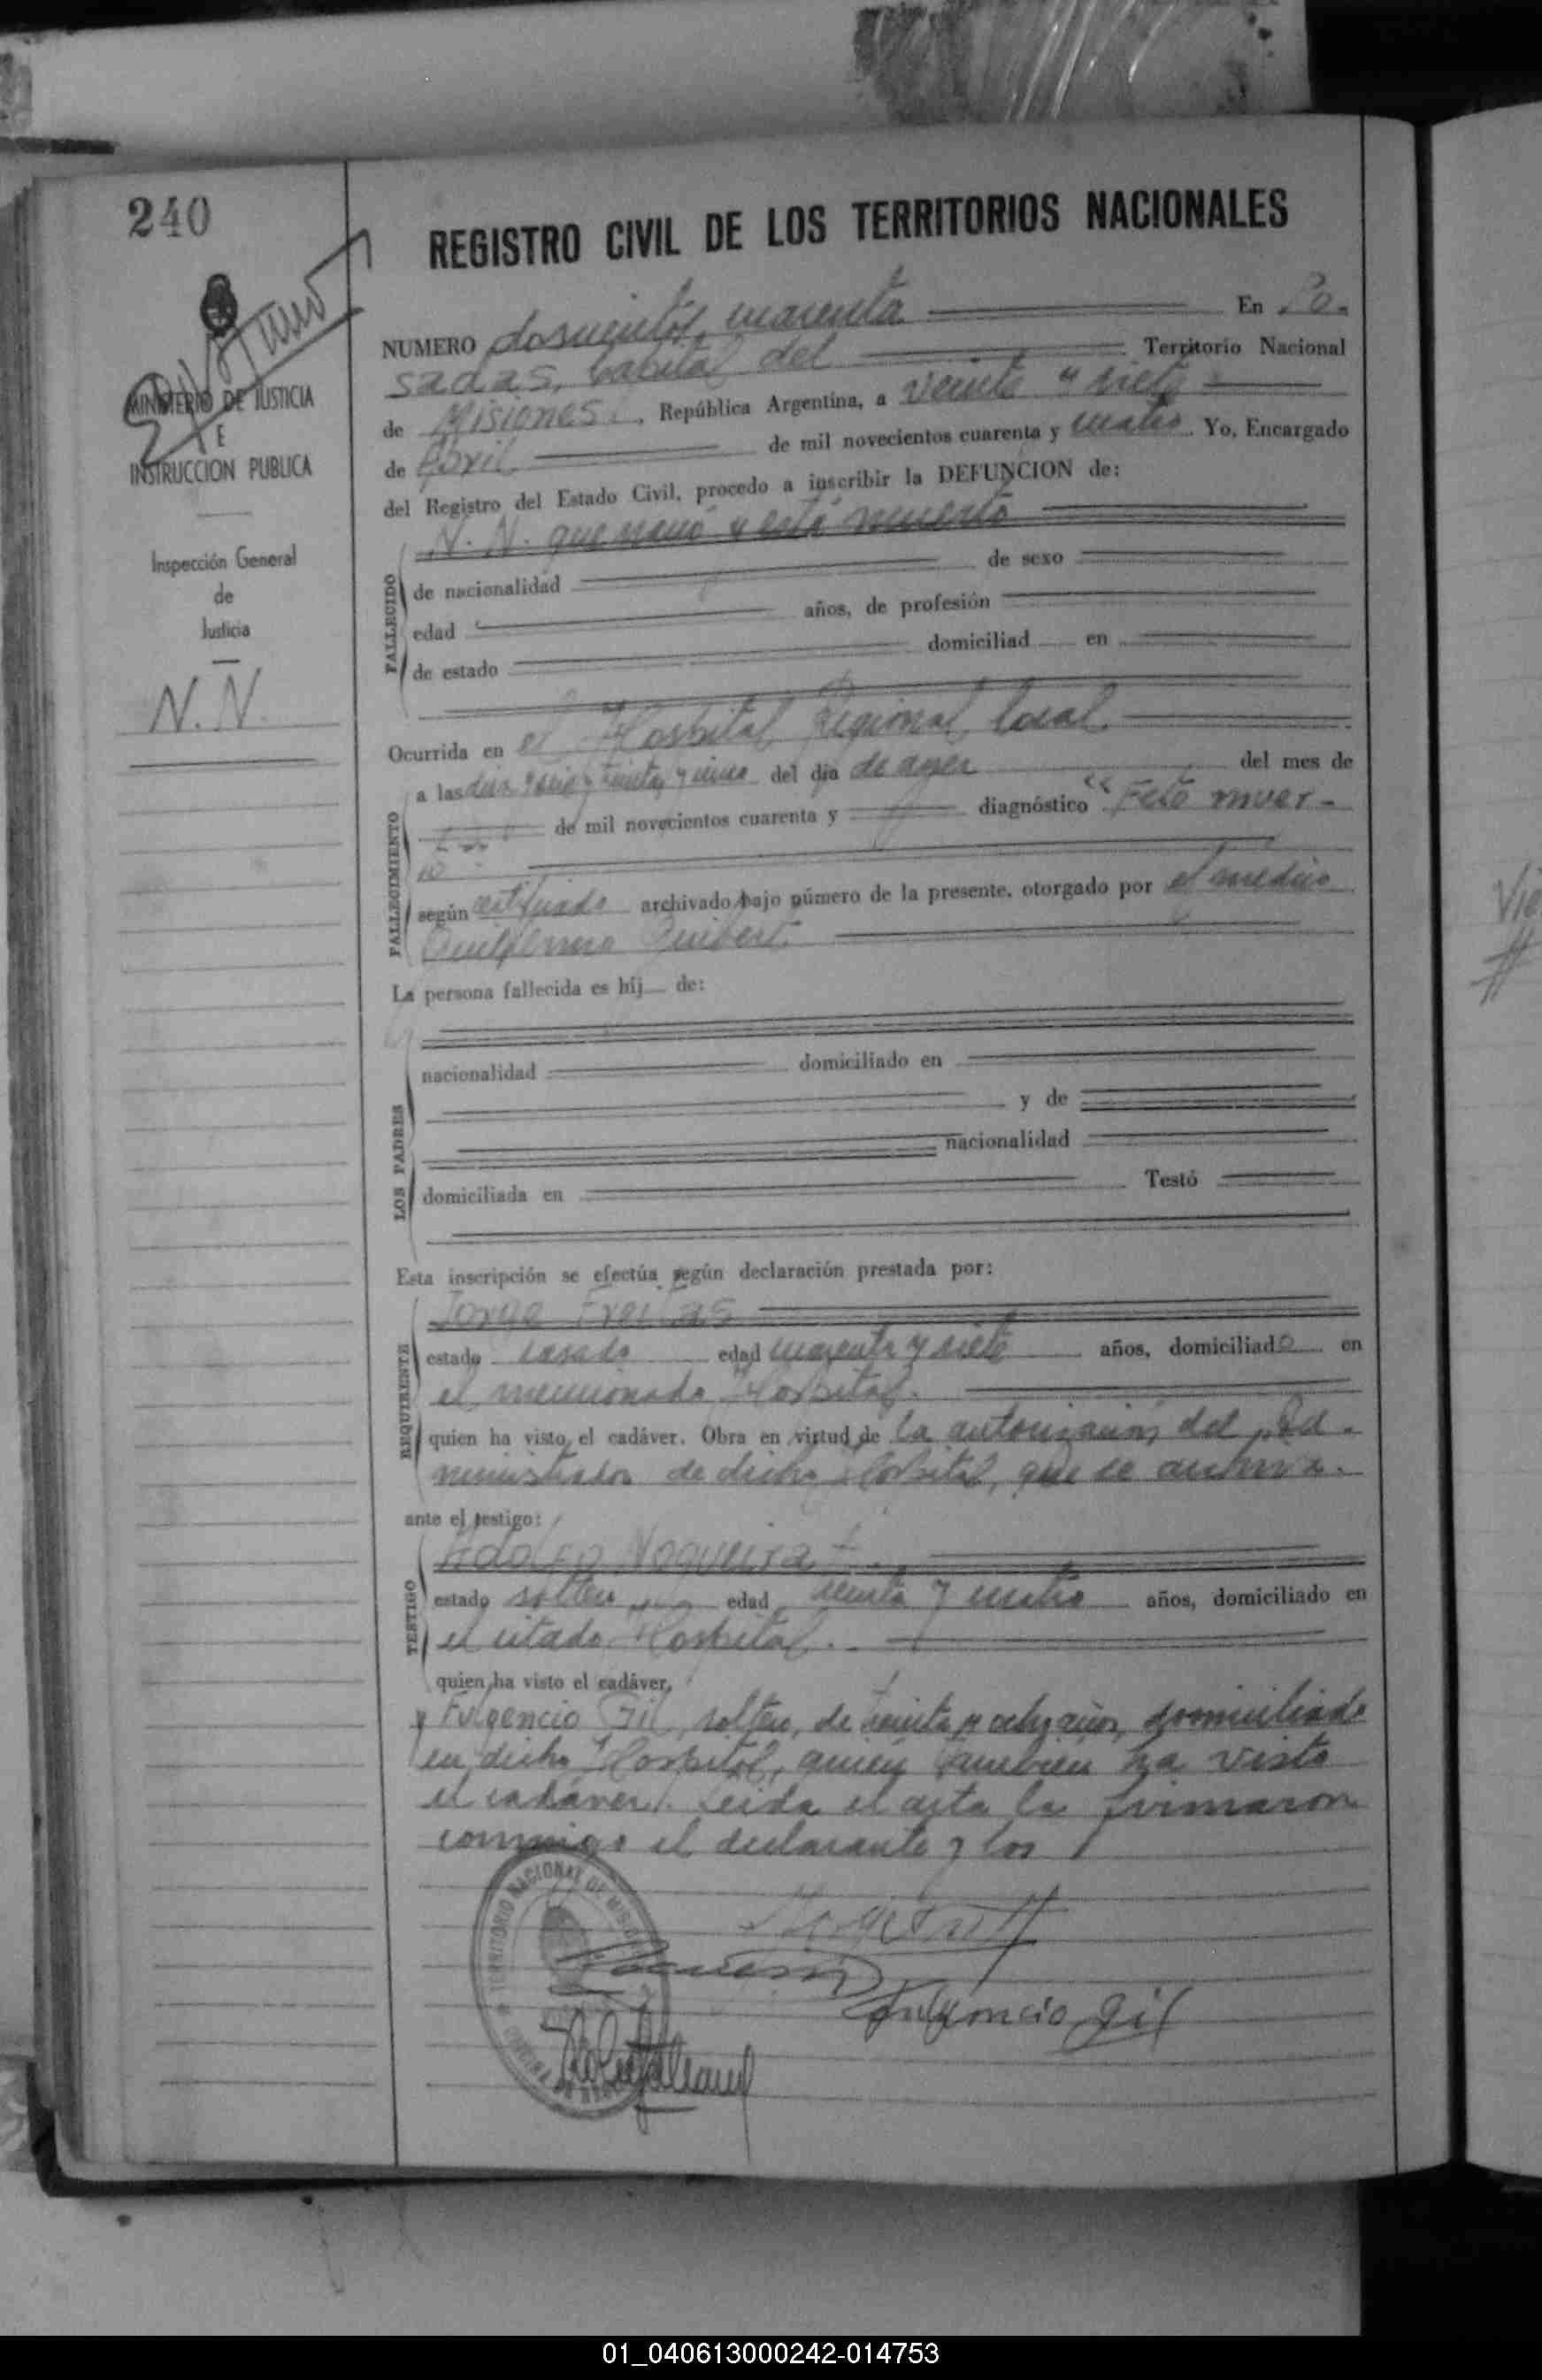 240
REGISTRO CIVIL DE LOS TERRITORIOS NACIONALES
MINISTERIO DE JUSTICIA
E
INSTRUCCION PUBLICA
Inspección General
de
Justicia
N. N.
NUMERO doscientos cuarenta En Po-
sadas, Capital del Territorio Nacional
de Misiones, República Argentina, a veinte y siete
de Abril de mil novecientos cuarenta y cuatro. Yo, Encargado
del Registro del Estado Civil, procedo a inscribir la DEFUNCION de:
N. N. que nació y está muerto
FALLECIDO
de nacionalidad de sexo
edad años, de profesión
de estado domiciliad en
Ocurrida en el Hospital Regional local.
FALLECIMIENTO
a las diez y seis y treinta y cinco del día de ayer del mes de
de mil novecientos cuarenta y diagnóstico "Feto muer-
to
según certificado archivado bajo número de la presente, otorgado por el médico
Guillermo
La persona fallecida es hij de:
LOS PADRES
nacionalidad domiciliado en
y de
nacionalidad
domiciliada en Testó
Esta inscripción se efectúa según declaración prestada por:
REQUIRENTE
Jorge Freitas
estado casado edad cuarenta y siete años, domiciliado en
el mencionado Hospital.
quien ha visto el cadáver. Obra en virtud de la autorización del Ad-
ministrador de dicho Hospital, que se archiva.
ante el testigo:
TESTIGO
Adolfo Nogueira
estado soltero edad y cuatro años, domiciliado en
el citado Hospital.
quien ha visto el cadáver,
y Fulgencio Gil, soltero, de y ocho años, domiciliado
en dicho Hospital, quien también ha visto
el cadáver. Leída el acta la firmaron
conmigo el declarante y los
TERRITORIO NACIONAL DE MISIONES
Fulgencio Gil
01_040613000242-014753